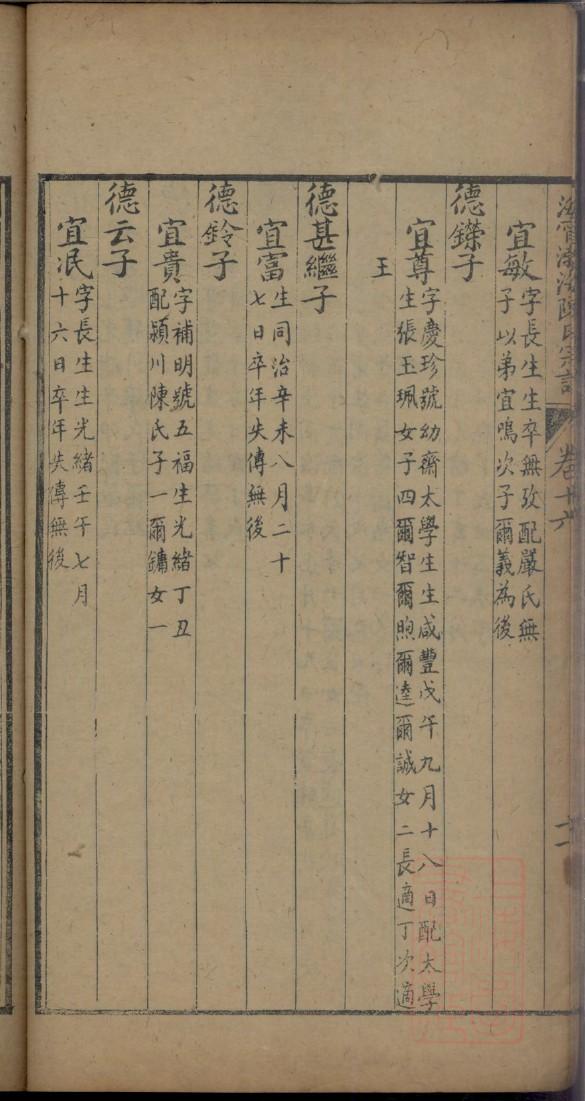 海寧渤海陳氏宗譜 卷十六
宜敏 字長生生卒無攷配嚴氏無
子以弟宜鳴次子爾義為後
德鑅子
宜尊 字慶珍號幼齋太學生生咸豐戊午九月十八日配太學
生張玉珮女子四爾智爾煦爾逵爾誠女二長適丁次適
王
德甚繼子
宜富 生同治辛未八月二十
七日卒年失傳無後
德鈴子
宜貴 字補明號五福生光緒丁丑
配潁川陳氏子一爾鏞女一
德云子
宜泯 字長生生光緒壬午七月
十六日卒年失傳無後